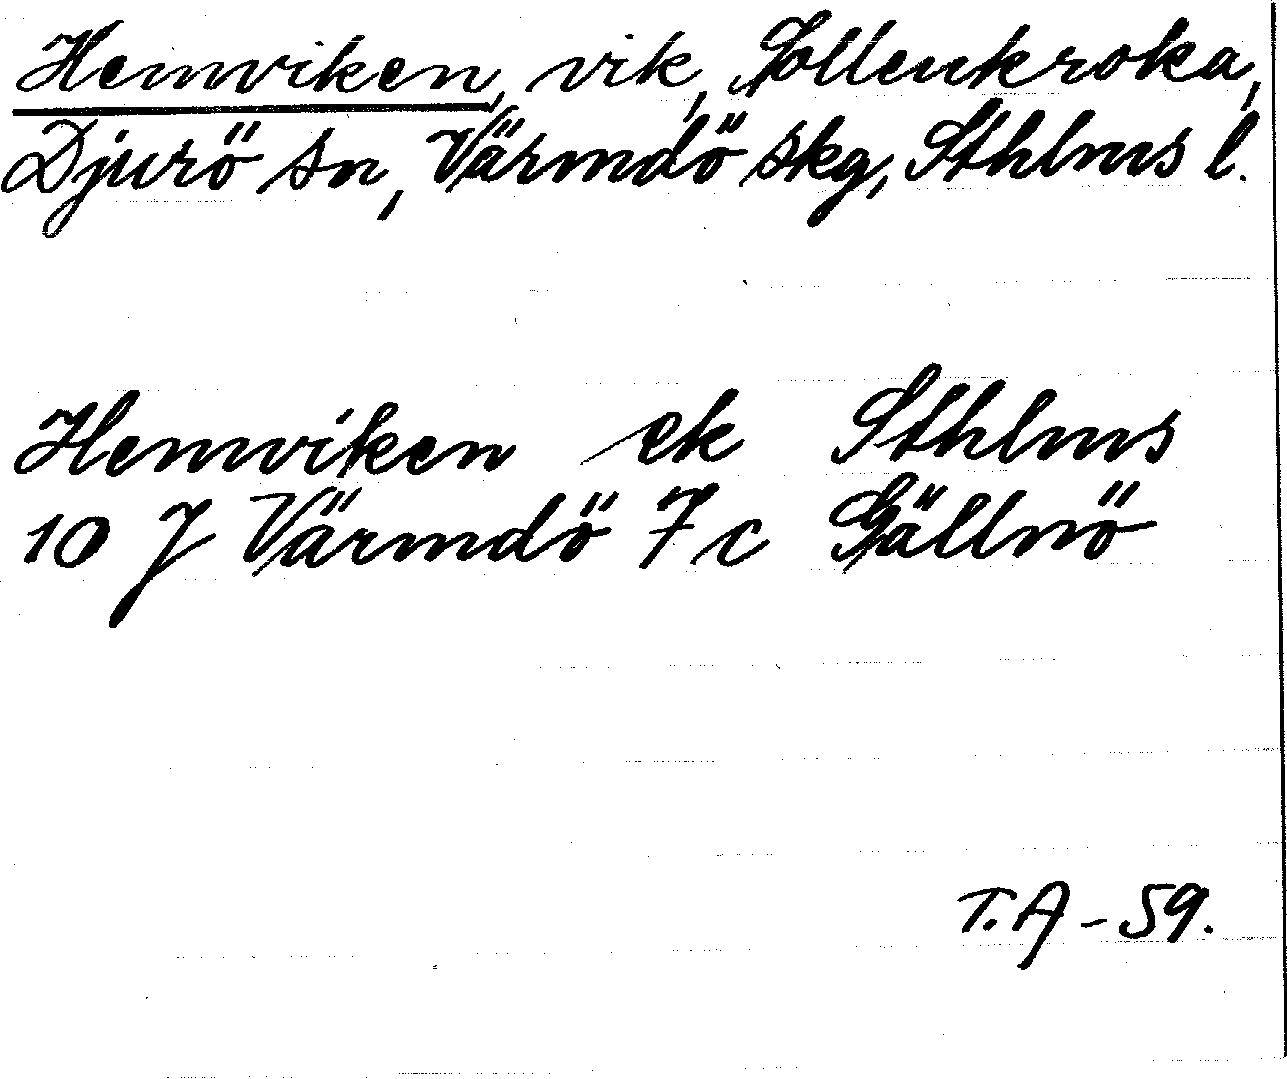 Hemviken, vik, Sollenkroka,
Djurö sn, Värmdö skg, Sthlms l.
Hemviken ek Sthlms
10 J Värmdö 7 c Gällnö
T.A - 59.